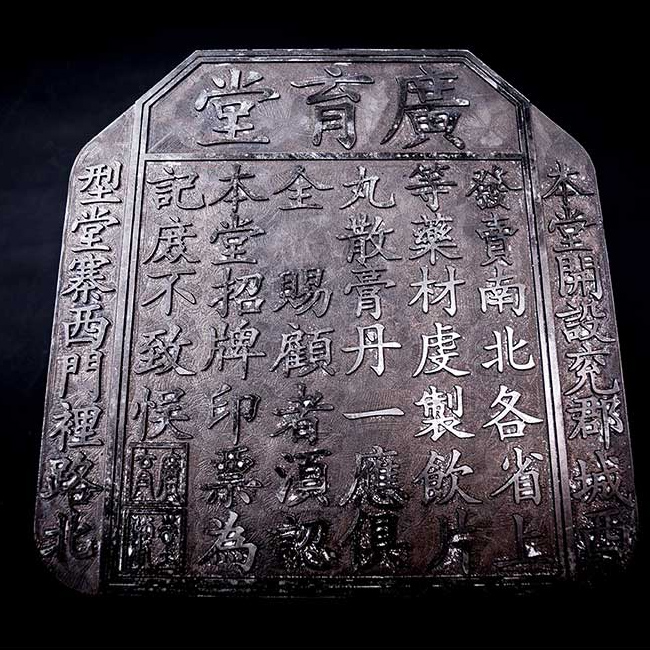 廣育堂
本堂開設兖郡城西
發賣南北各省上
等藥材虔製飲片
丸散膏丹一應俱
全賜顧者須認
本堂招牌印票為
記庻不致悮
型堂寨西門裡路北